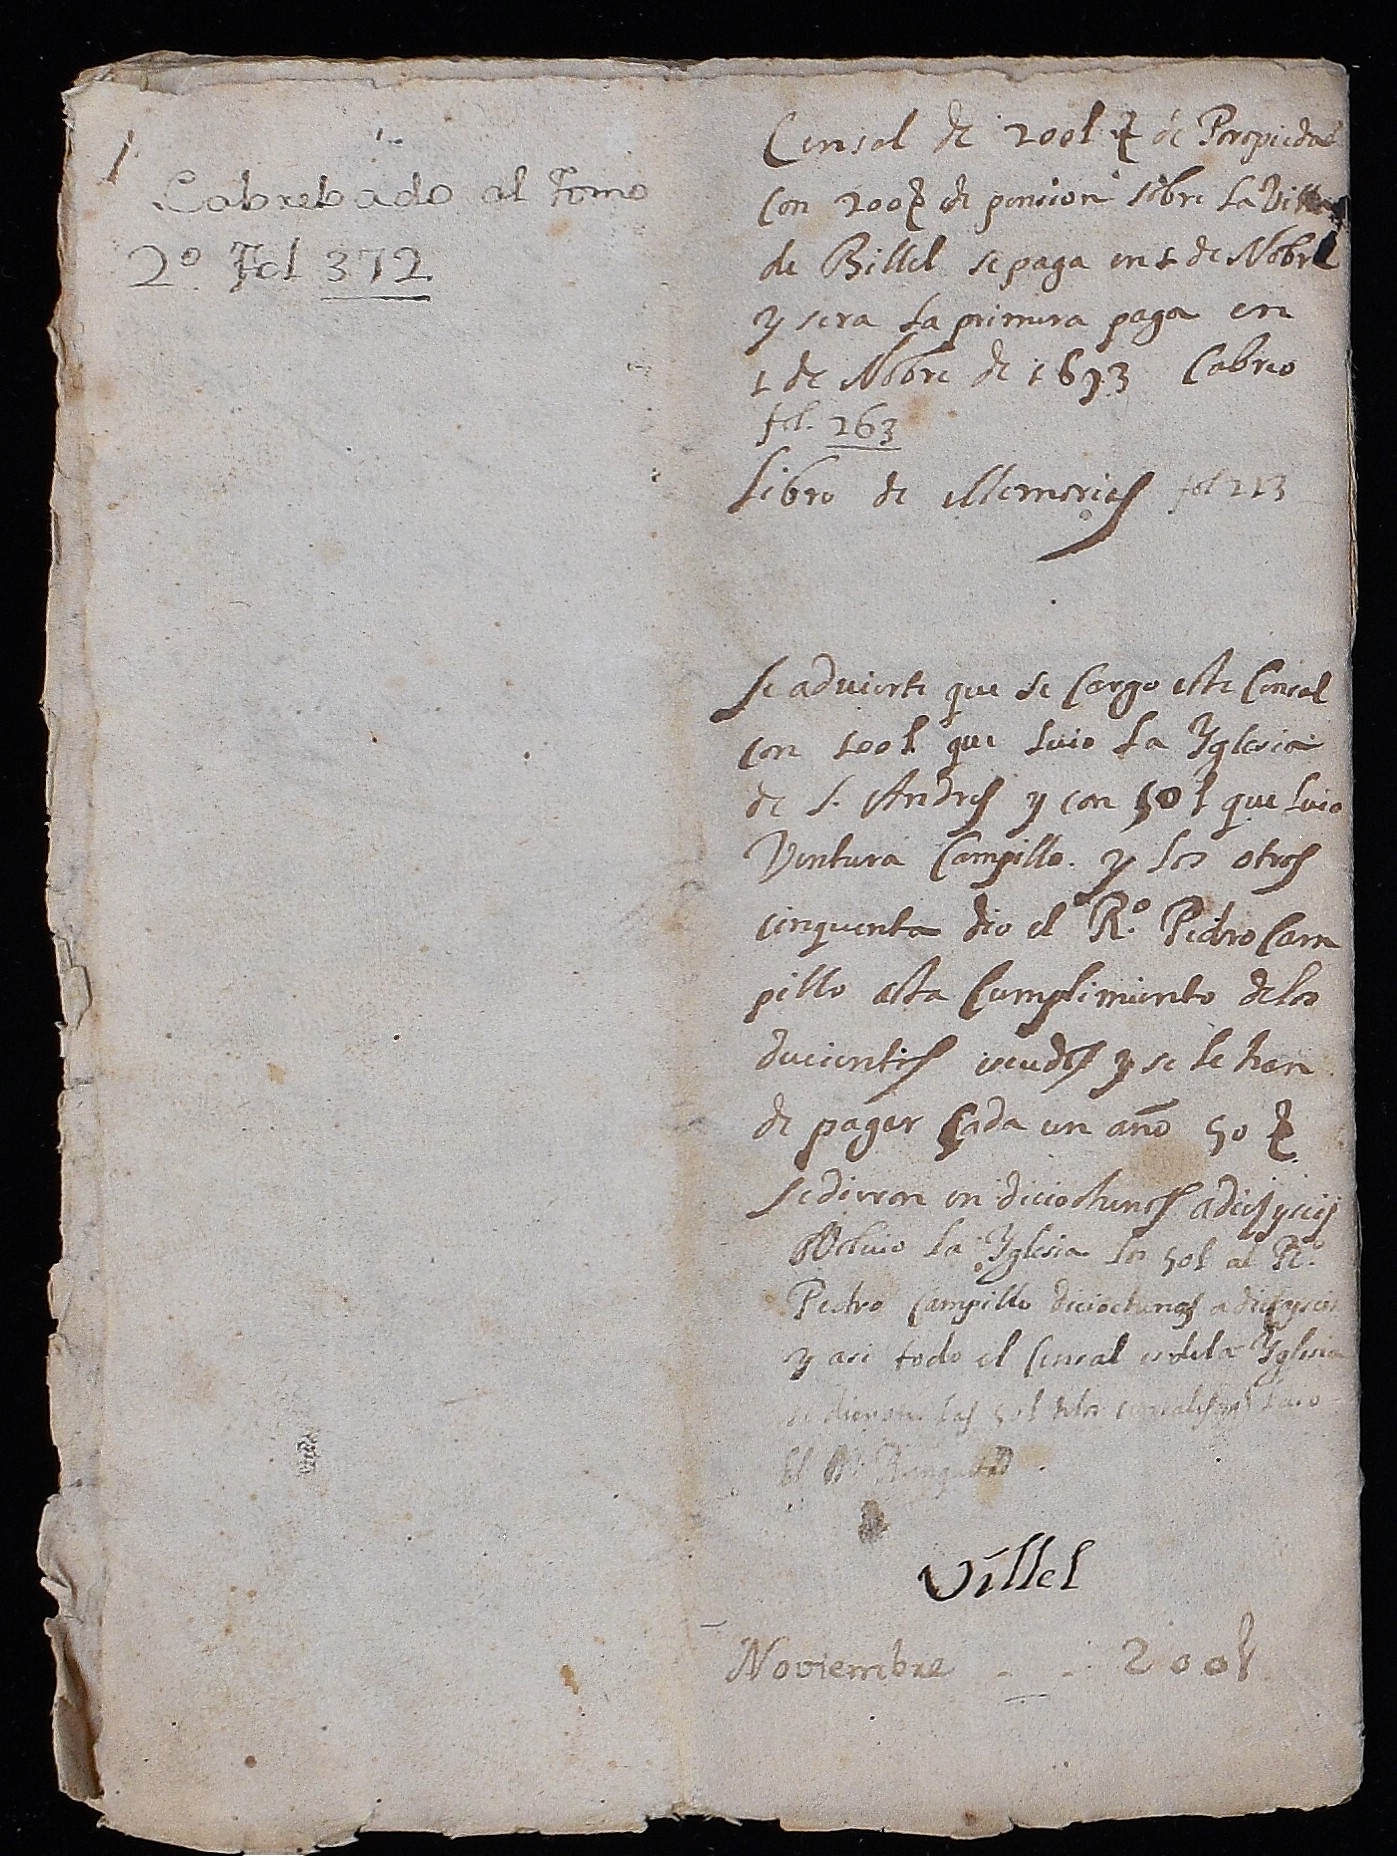 1
Cabrebado al Tomo
2º. Fol 372
Censal de 200l de Propiedad
con 200 de pension sobre La Villa
de Billel se paga en 1 de Nobre
y sera La primera paga en
1 de Nobre de 1693 Cabreo
fol. 263
Libro de Memorias fol 213
Se advierte que se Cargo este Censal
con 100l que luio La Yglesia
de S. Andres y con 50l que luio
Ventura Campillo. y los otros
cinquenta dio el Rº. Pedro Cam
pillo asta Cumplimiento de los
ducientos escudos y se le han
de pagar Cada un año 50
Se dieron en dieciochenos a dies y seis
Bolvio La Yglesia los 50l al Rº.
Pedro Campillo dieciochenos a dies y seis
y asi todo el Censal es de la Yglesia
se dieron las 50l de los censales luio
el
Villel
Noviembre - - 200l